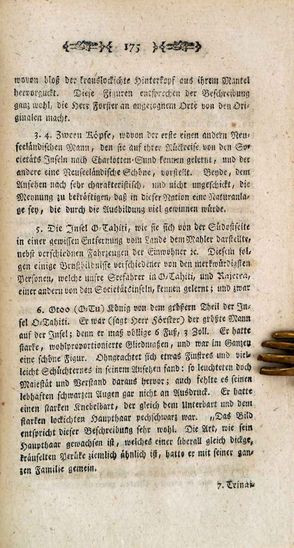 175
wovon bloß der krauslockichte Hinterkopf aus ihrem Mantel
hervorguckt. Diese Figuren entsprechen der Beschreibung
ganz wohl, die Herr Forster an angezognem Orte von den Ori-
ginalen macht.
3. 4. Zween Köpfe, wovon der erste eigen andern Neu-
seeländischen Mann, den sie auf ihrer Rückreise von den So-
cietäts Inseln nach Charlotten-Sund kennen gelernt, und der
andere eine Neuseeländische Schöne, vorstellt. Beyde, dem
Ansehen nach sehr charakteristisch, und nicht ungeschickt, die
Meynung zu bekräftigen, daß in dieser Nation eine Naturanla-
ge sey, die durch die Ausbildung viel gewinnen würde.
5. Die Insel O-Tahiti, wie sie sich von der Südostseite
in einer gewissen Entfernung vom Lande dem Mahler darstellte,
nebst verschiednen Fahrzeugen der Einwohner ꝛc. Diesem fol-
gen einige Brustbildnisse verschiedener von den merkwürdigsten
Personen, welche unsre Seefahrer in O-Tahiti, und Rajetea,
einer andern von den Societätsinseln, kennen gelernt; und zwar
6. Otoo (O-Tu) König von dem größern Theil der In-
sel O-Tahiti. Er war (sagt Herr Forster) der größte Mann
auf der Insel; denn er maß völlige 6 Fuß, 3 Zoll. Er hatte
starke, wohlproportionirte Gliedmaßen, und war im Ganzen
eine schöne Figur. Ohngeachtet sich etwas Finstres und viel-
leicht Schüchternes in seinem Ansehen fand: so leuchteten doch
Majestät und Verstand daraus hervor; auch fehlte es seinen
lebhaften schwarzen Augen gar nicht an Ausdruck. Er hatte
einen starken Knebelbart, der gleich dem Unterbart und dem
starken lockichten Haupthaar pechschwarz war. „Das Bild
entspricht dieser Beschreibung sehr wohl. Die Art, wie sein
Haupthaar gewachsen ist, welches einer überall gleich dicken,
kräuselten Peruke ziemlich ähnlich ist, hatte er mit seiner gan-
zen Familie gemein.
7. Trinai-